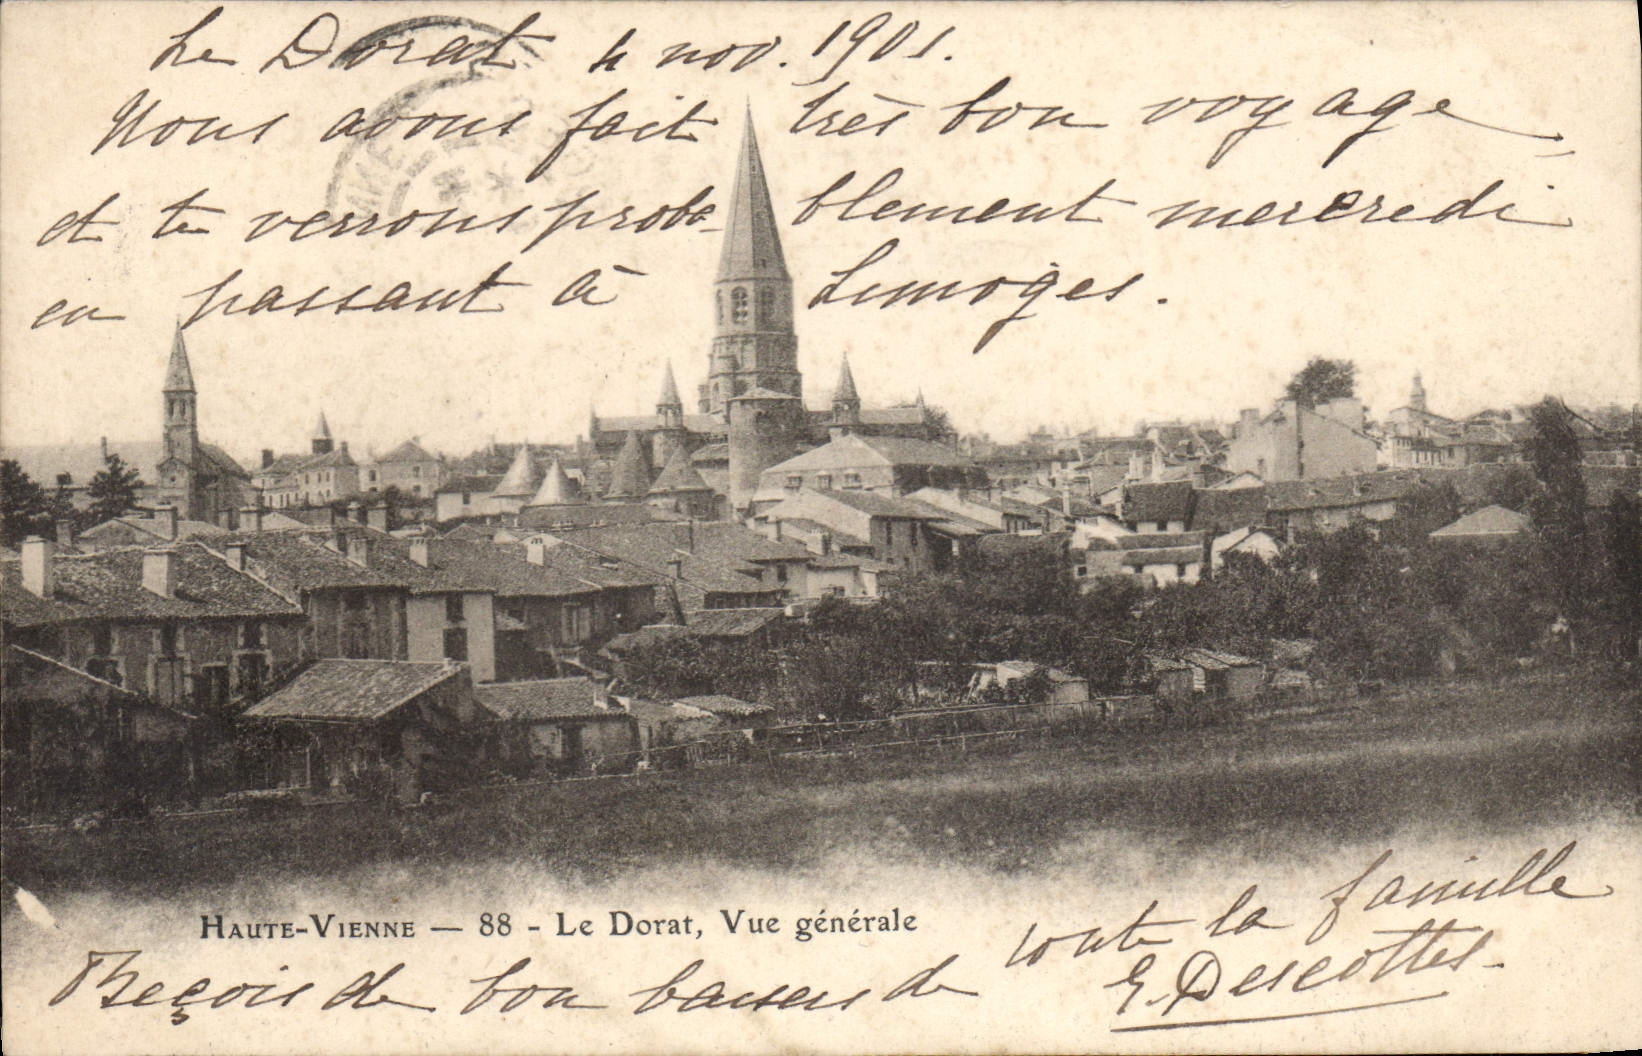 Le Dorat 4 nov. 1901.
Nous avons fait très bon voyage
et te verrons proba- blement mercredi
en passant à Limoges.
HAUTE-VIENNE — 88 - Le Dorat, Vue générale
Reçois de bon baisers de toute la famille
E. Descottes.